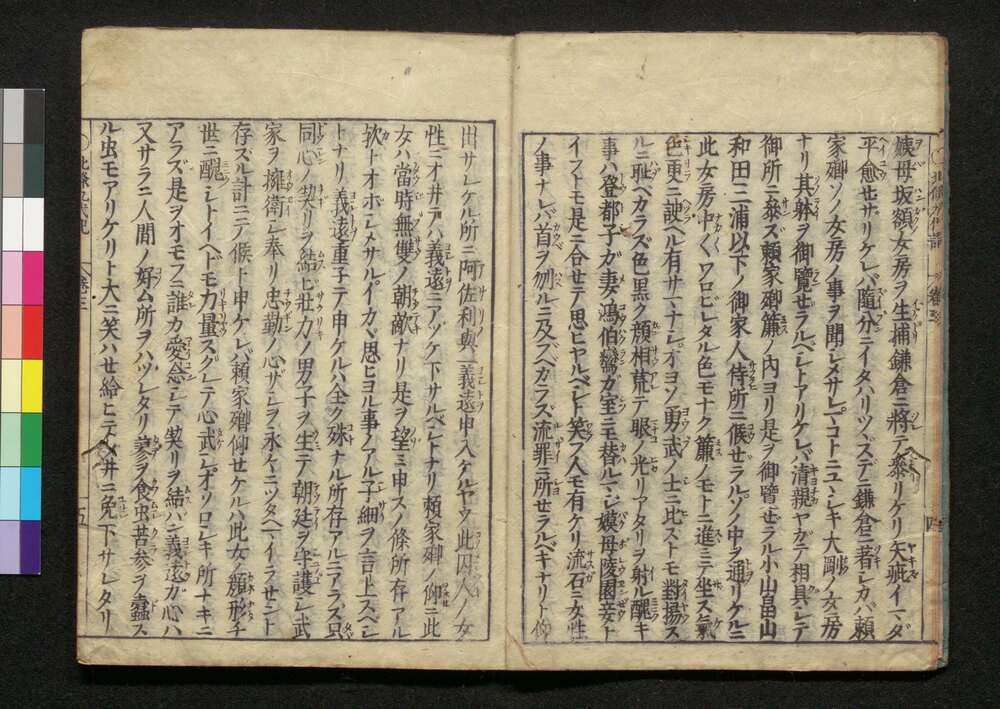 姨母坂額女房ヲ生捕鎌倉ニ將テ參リケリ矢疵イマダ
平愈セザリケレバ隨分ニイタハリツヽステニ鎌倉ニ著シカバ頼
家卿ソノ女房ノ事ヲ聞シメサレテコトニユヽシキ大剛ノ女房
ナリ其射ヲ御覽セラルベシトアリケレバ清親ヤガテ相具シテ
御所ニ參ズ頼家卿簾ノ内ヨリ是ヲ御覽ゼラル小山畠山
和田三浦以下ノ御家人侍所ニ候セラルソノ中ヲ通リケルニ
此女房中〱ワロビレタル色モナク簾ノモトニ進ミテ坐ス氣
色更ニ諛ヘル有サマナシオヨソ勇武ノ士ニ比ストモ對揚ス
ルニ耻ベカラズ色黒ク顔相荒テ眼ノ光リアタリヲ射ル醜キ
事ハ登都子ガ妻ノ鴻伯鸞ガ室ニモ替ルマジ嫫母陵園妾ト
イフトモ是ニ合セテ思ヒヤルベシト笑フ人モ有ケリ流石ニ女性
ノ事ナレバ首ヲ刎ルニ及ブベカラズ流罪ニ所セラルベキナリト仰
出サレケル所ニ阿佐利與一義遠申入ケルヤウ此囚人ノ女
性ニオ井テハ義遠ニアヅケ下サルベシトナリ頼家卿ノ仰ニ此
女ハ當時無雙ノ朝敵ナリ是ヲ望ミ申スノ條所存アル
欤トオボシメサルイカヾ思ヒヨル事ノアル子細ヲ言上スベシ
トナリ義遠重子テ申ケルハ全ク殊ナル所存アルニアラズ只
同心ノ契リヲ結ビ壮力ノ男子ヲ生ミテ朝廷ヲ守護シ武
家ヲ擁衛シ奉リ忠勤ノ心ザシヲ永クニツタヘマイラセント
存ズル計ニテ候ト申ケレバ頼家卿仰セケルハ此女ノ顔形チ
世ニ醜シトイヘドモ力量スグレテ心武シオソロシキ所ナキニ
アラズ是ヲオモフニ誰カ愛念シテ契リヲ結バン義遠ガ心ハ
又サラニ人間ノ好ム所ヲハヅレタリ蓼ヲ食虫苦參ヲ蠹ス
ル虫モアリケリト大ニ笑ハせ給ヒテツ井ニ免下サレタリ